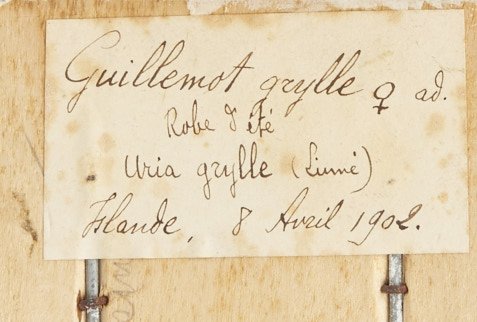 Guillemot grylle ♀ ad.
Robe d'été
Uria grylle (Linné)
Islande, 8 Avril 1902.